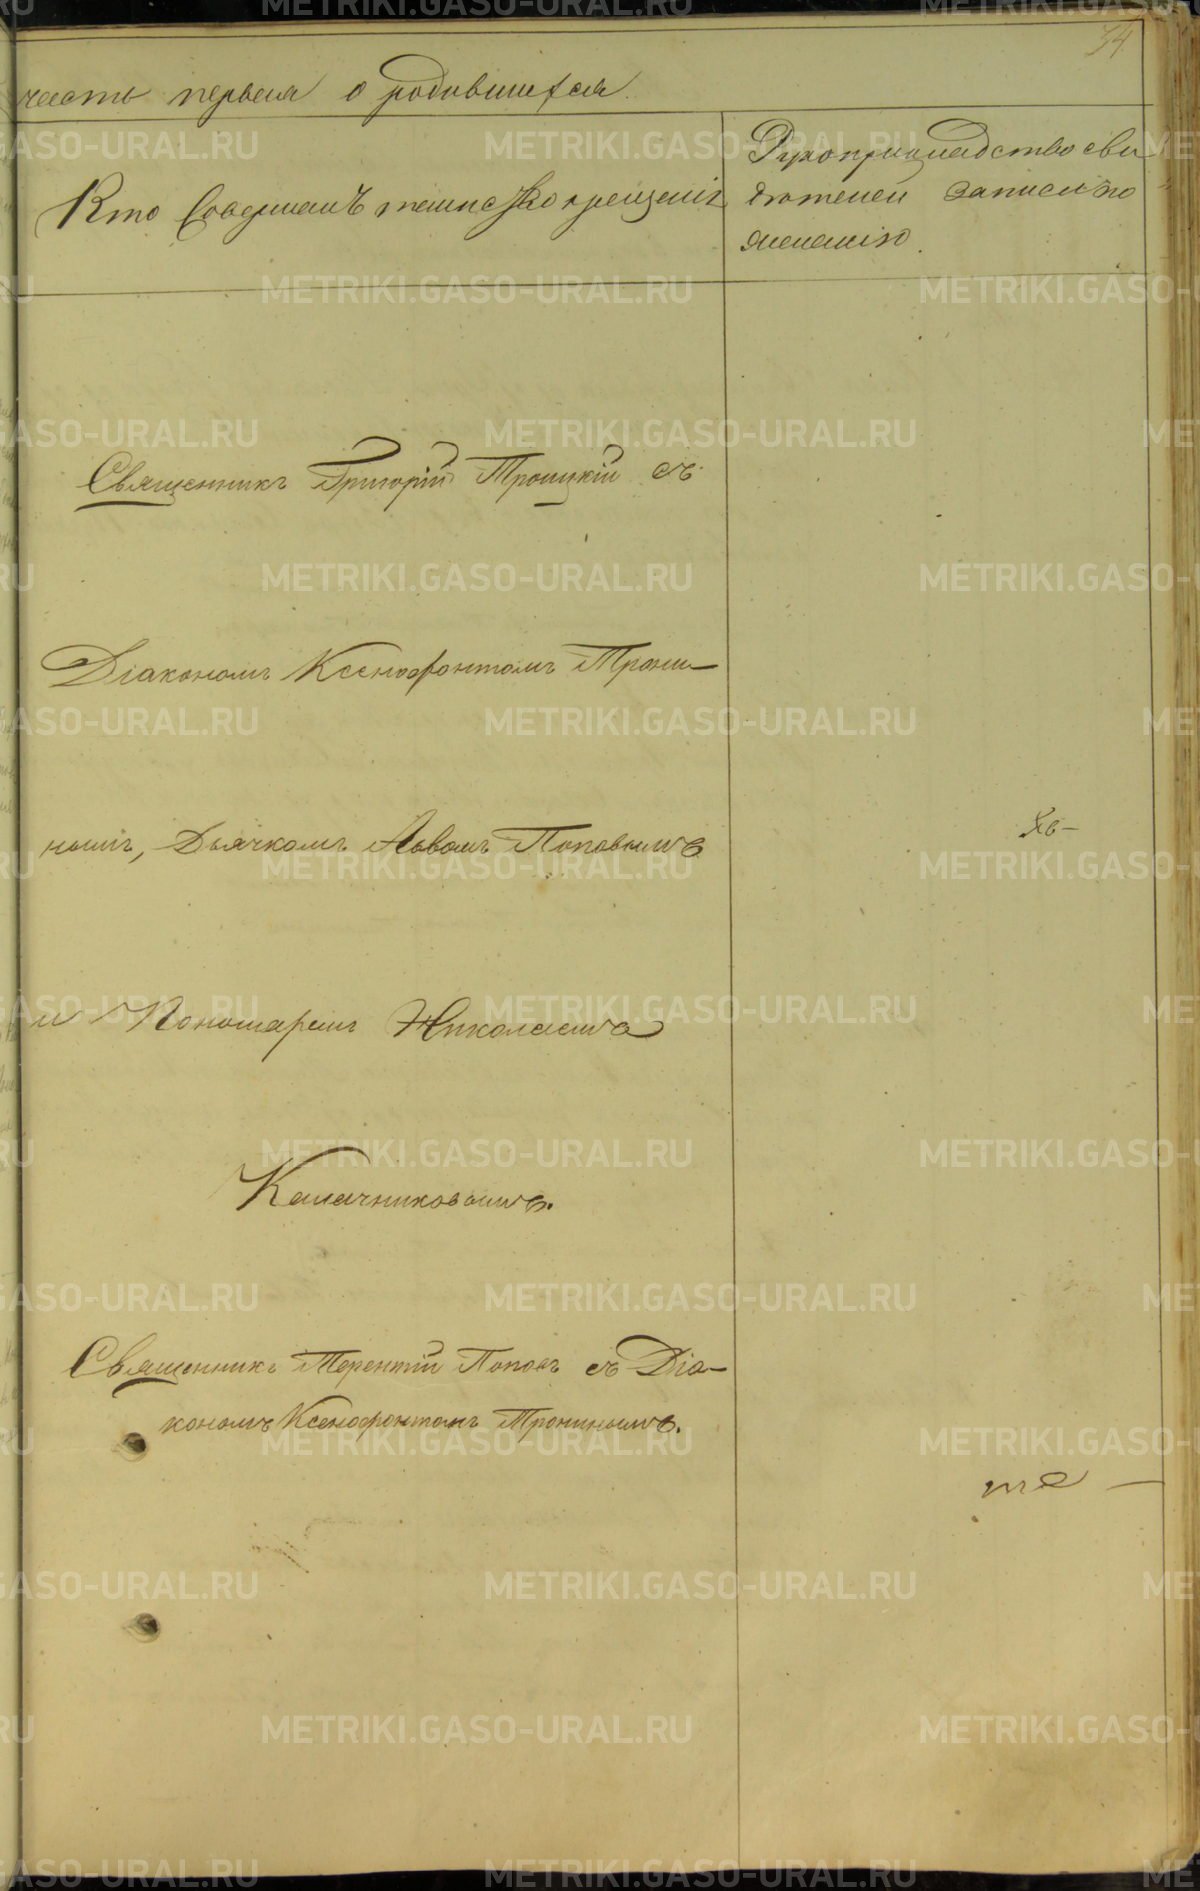 34
часть первая о родившихся
Кто Совершалъ таинство крещенія
Рукоприкладство сви
дѣтелей записи по
желанію.
Священникъ Григорій Троицкій съ
Діакономъ Ксенофонтомъ Трони-
нымъ, Дьячкомъ Львомъ Поповымъ
и Пономаремъ Николаемъ
Калачниковымъ.
Священникъ Терентій Поповъ съ Діа-
кономъ Ксенофонтомъ Тронинымъ.
METRIKI.GASO-URAL.RU